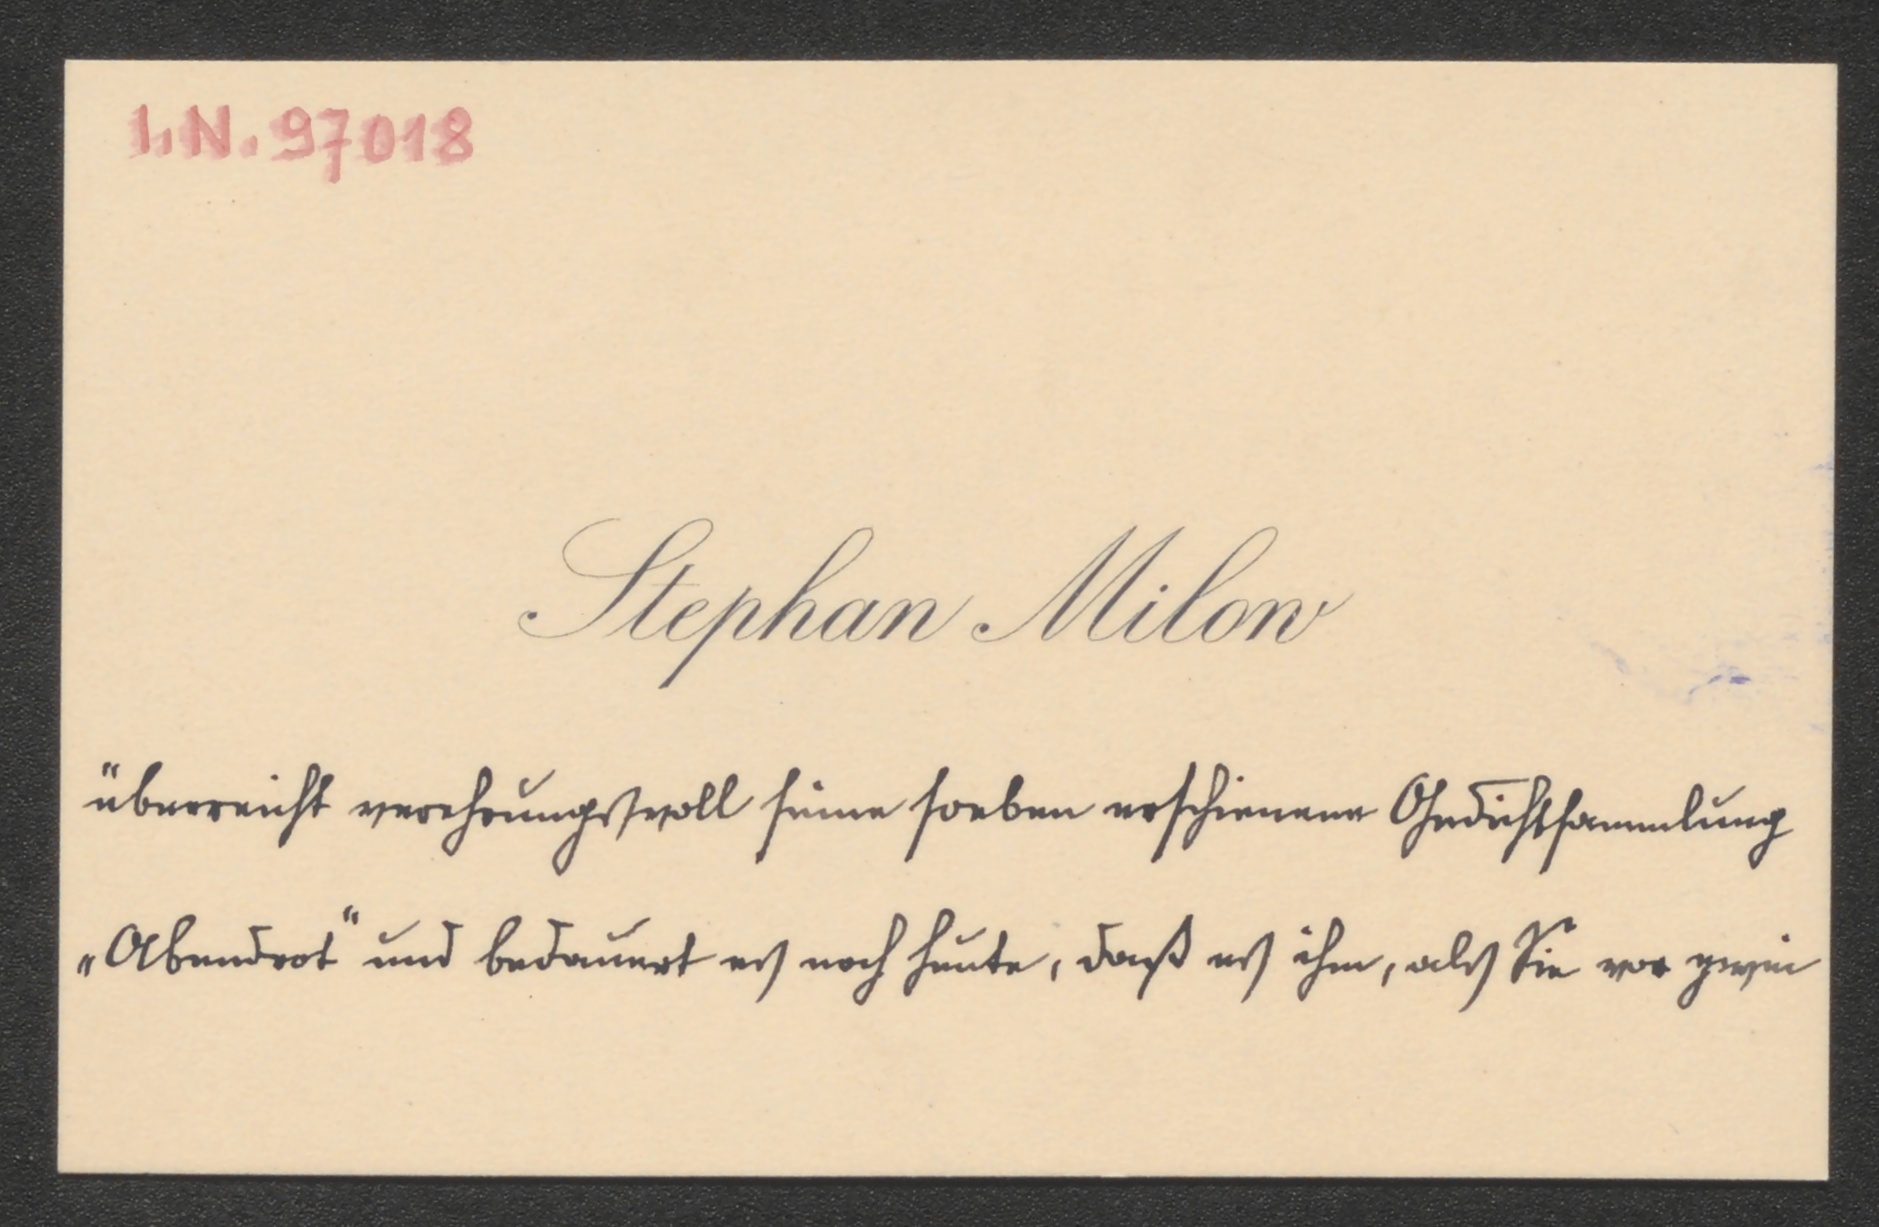 I.N. 97018
Stephan Milow
überreicht verehrungsvoll seine soeben erschienene Gedichtsammlung
„Abendrot“ und bedauert es noch heute, daß es ihm, als Sie vor zwei